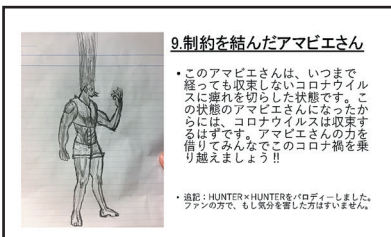 9.制約を結んだアマビエさん
• このアマビエさんは、いつまで
経っても収束しないコロナウイル
スに痺れを切らした状態です。こ
の状態のアマビエさんになったか
らには、コロナウイルスは収束す
るはずです。アマビエさんの力を
借りてみんなでこのコロナ禍を乗
り越えましょう!!
• 追記：HUNTER×HUNTERをパロディーしました。
ファンの方で、もし気分を害した方はすいません。